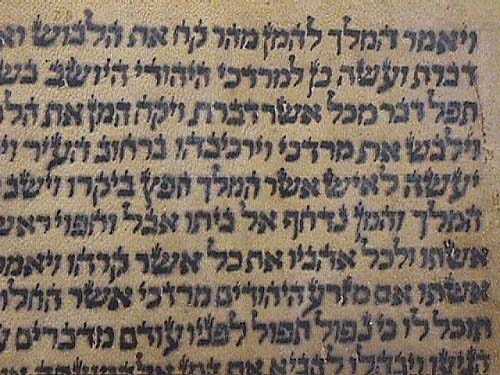 ויאמר המלך להמן מהר קח את הלבוש וא
דברת ועשה כן למרדכי היהודי היושב בש
תפל דבר מכל אשר דברת ויקח המן את הלב
וילבש את מרדכי וירכיבהו ברחוב העיר וי
יעשה לאיש אשר המלך חפץ ביקרו וישב
המלך והמן נדחף אל ביתו אבל וחפוי ראש
אשתו ולכל אהביו את כל אשר קרהו ויאמ
אשתו אם מזרע היהודים מרדכי אשר החלו
תוכל לו כי נפול תפול לפניו עודם מדברים ע
הגיעו ויבהלו להביא את המן אל